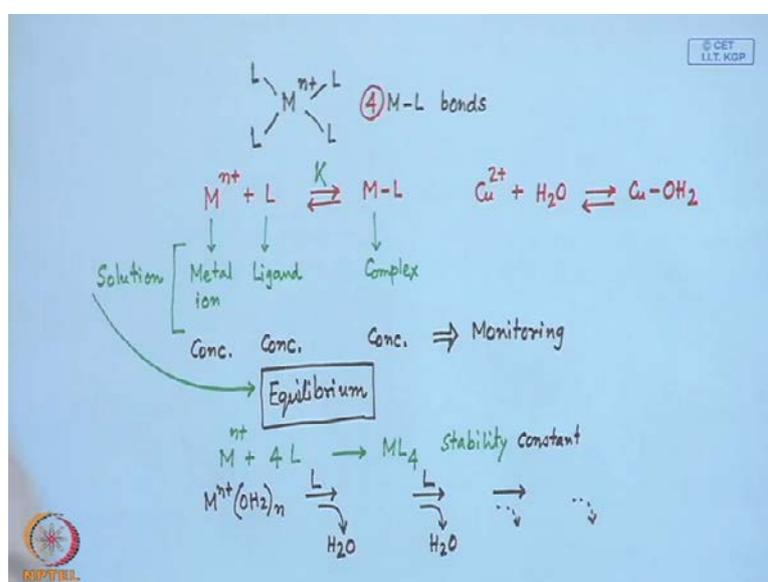 © CET
I.I.T. KGP
L n+ L
M
L L
④ M-L bonds
Mⁿ⁺ + L ⇌ M-L
K
Cu²⁺ + H₂O ⇌ Cu-OH₂
Solution [ Metal ion Ligand Complex
Conc. Conc. Conc. ⇒ Monitoring
Equilibrium
Mⁿ⁺ + 4L → ML₄ stability constant
Mⁿ⁺(OH₂)ₙ L→ L→ → ...
H₂O H₂O
NPTEL